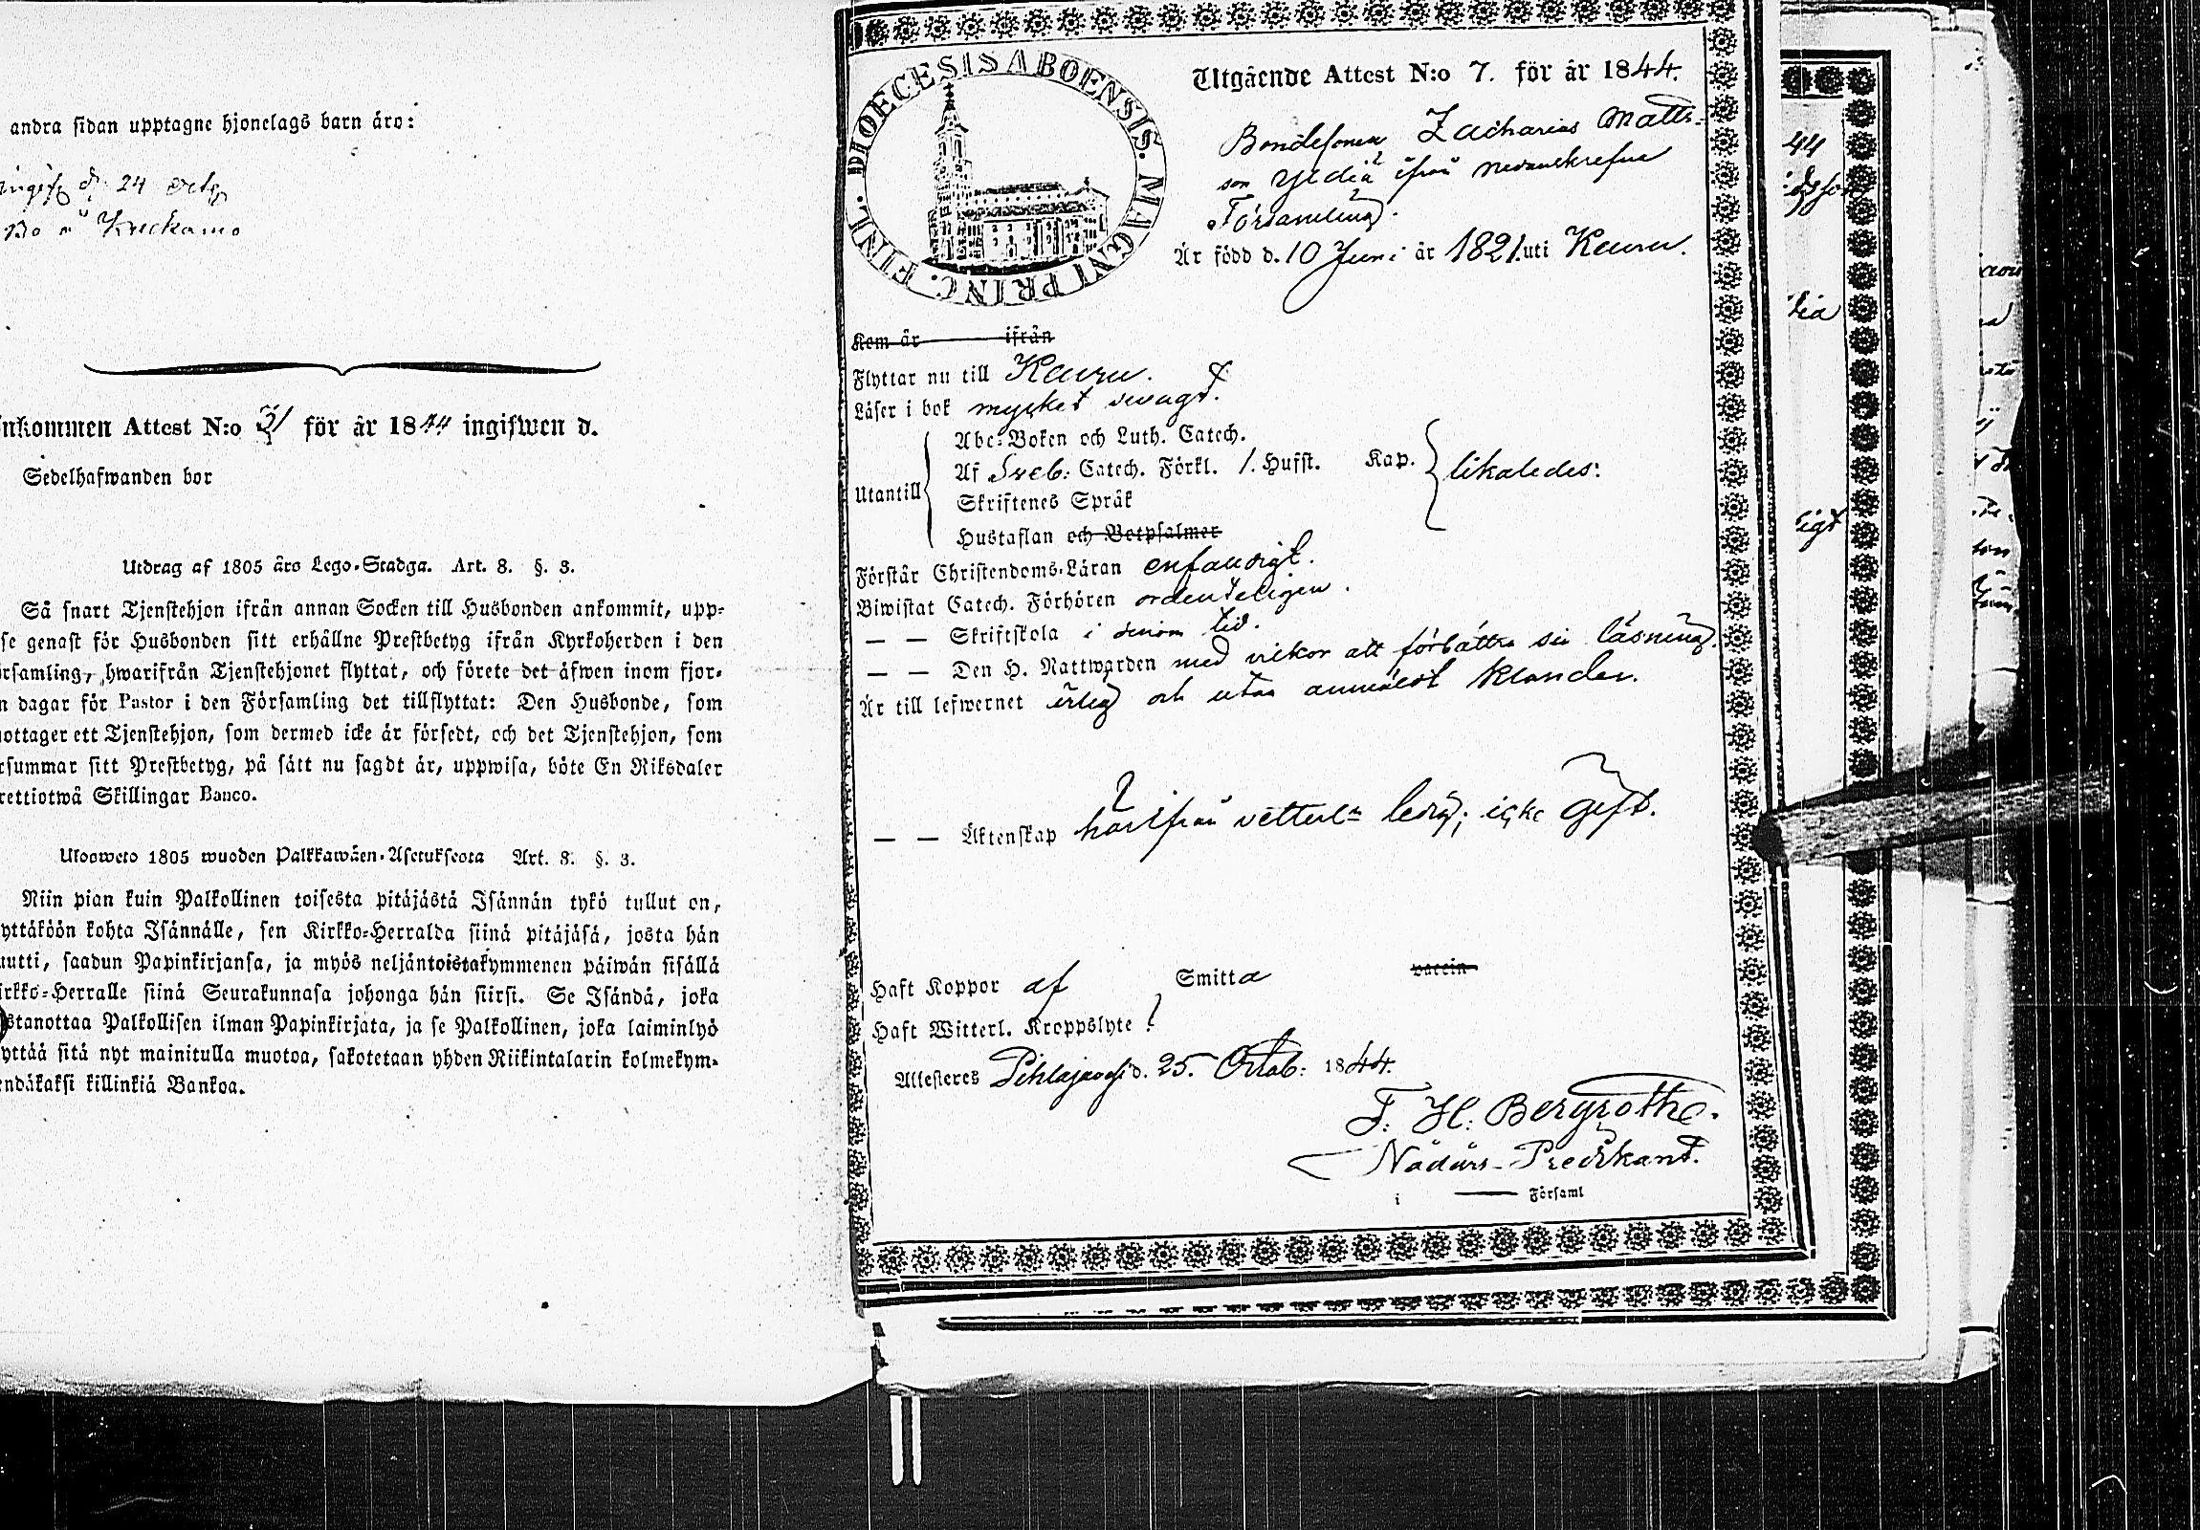 andra sidan upptagne hjonelags barn äro:
d. 24
Bo
nkommen Attest N:o 31 för år 1844 ingifwen d.
Sedelhafwanden bor
Utdrag af 1805 års Lego-Stadga. Art. 8. §. 3.
Så snart Tjenstehjon ifrån annan Socken till Husbonden ankommit, upp-
se genast för Husbonden sitt erhållne Prestbetyg ifrån Kyrkoherden i den
rsamling, hwarifrån Tjenstehjonet flyttat, och förete det äfwen inom fjor-
n dagar för Pastor i den Församling det tillflyttat: Den Husbonde, som
ottager ett Tjenstehjon, som dermed icke är försedt, och det Tjenstehjon, som
rsummar sitt Prestbetyg, på sätt nu sagdt är, uppwisa, böte En Riksdaler
rettiotwå Skillingar Banco.
Ulosweto 1805 wuoden Palkkawäen-Asetuksesta Art. 8. §. 3.
Niin pian kuin Palkollinen toisesta pitäjästä Isännän tykö tullut on,
yttäköön kohta Isännälle, sen Kirkko-Herralda siinä pitäjäsä, josta hän
uutti, saadun Papinkirjansa, ja myös neljäntoistakymmenen päiwän sisällä
irkko-Herralle siinä Seurakunnasa johonga hän siirsi. Se Isändä, joka
stanottaa Palkollisen ilman Papinkirjata, ja se Palkollinen, joka laiminlyö
yttää sitä nyt mainitulla muotoa, sakotetaan yhden Riikintalarin kolmekym-
endäkaksi killinkiä Bankoa.
DIOECESIS ABOENSIS. MAGNI PRINC. FINL.
Utgående Attest N:o 7. för år 1844.
Bondesonen Zacharias Matts-
son Yldiä ifrån nedanskrefne
Församling.
Är född d. 10 Juni år 1821. uti Keuru.
Kom år ifrån
Flyttar nu till Keuru.
Läser i bok mycket svagt.
Abc-Boken och Luth. Catech.
Af Sveb: Catech. Förkl. 1. Hufst. Kap. likaledes:
Utantill
Skriftenes Språk
Hustaflan och Botpsalmer
Förstår Christendoms-Läran enfaldigt.
Biwistat Catech. Förhören ordenteligen.
— — Skriftskola i sinom tid.
— — Den H. Nattwarden med vilkor att förbättra sin läsning.
Är till lefwernet ärlig och utan anmäldt klander.
— — Äktenskap härifrån vetterl. ledig; icke gift.
Haft Koppor af Smitta vaccin
Haft Witterl. Kroppslyte
Attesteres Pihlajavesi d. 25. Octob: 1844.
F. H. Bergroth.
Nådårs-Predikant.
i Församl
44
igt